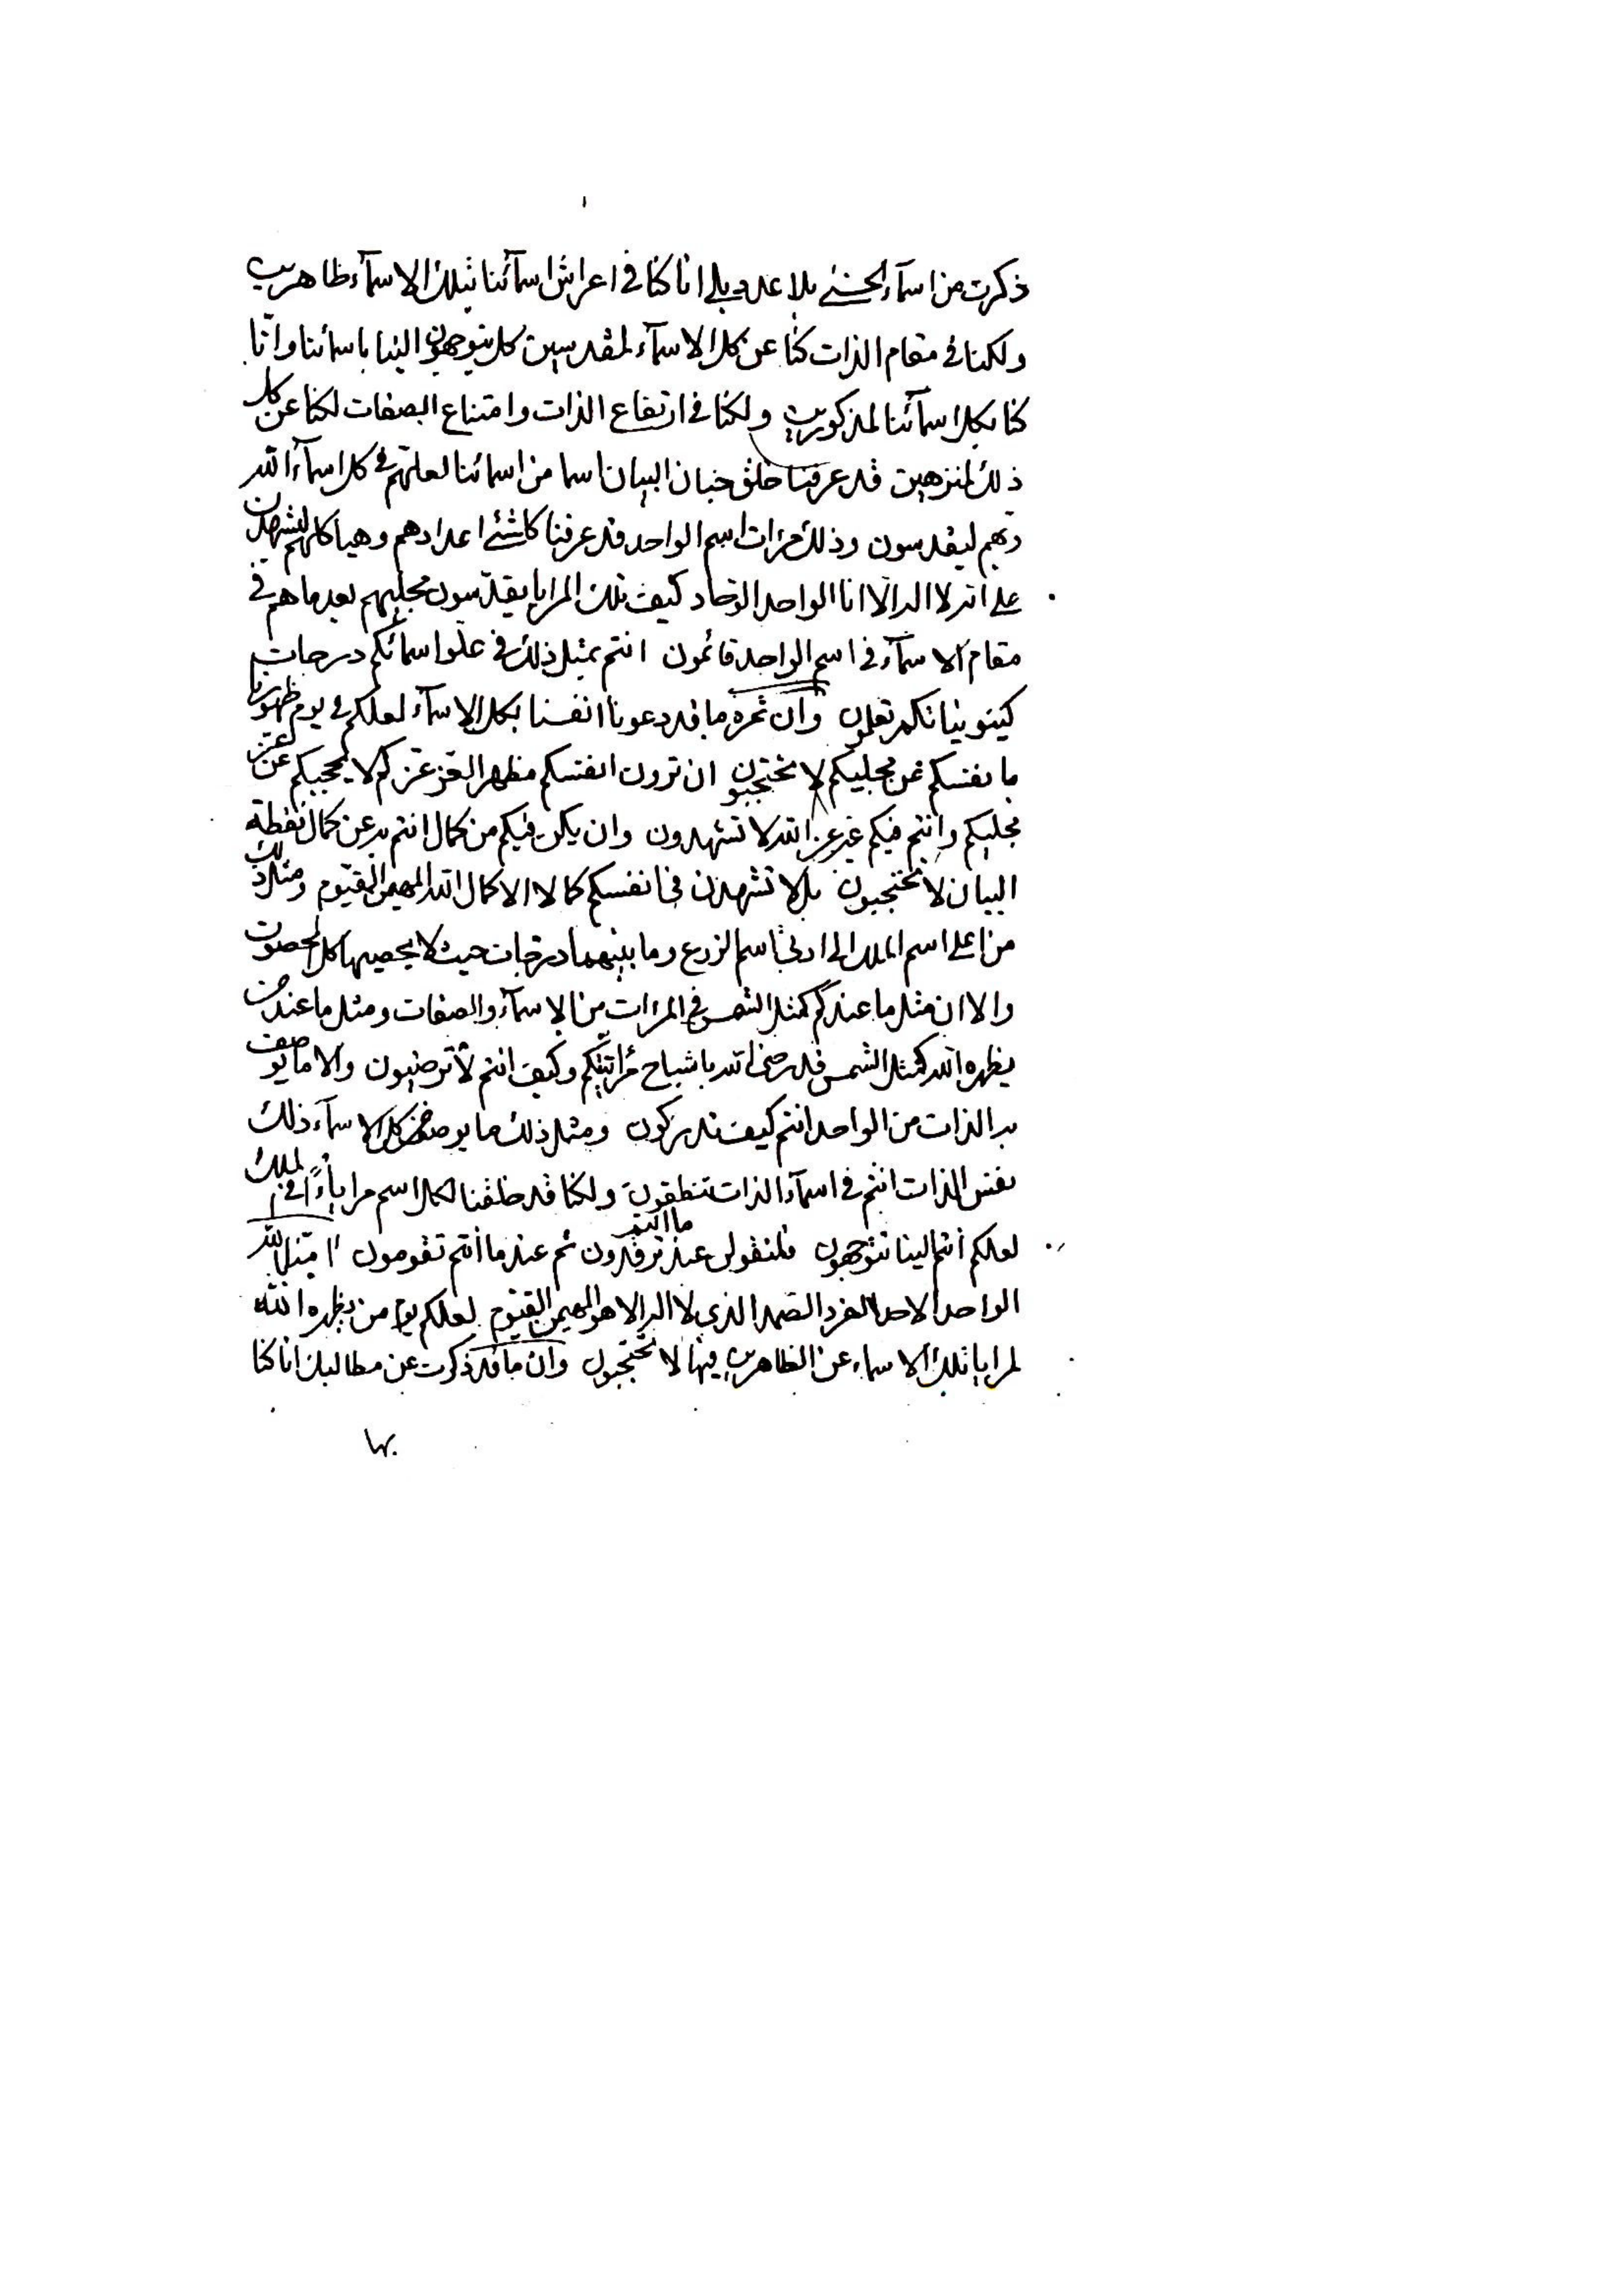 ذكرت من اسمآء الحسنى بلا عدد بلى انا كنا في اعراش اسمآئنا بتلك الاسمآء ظاهرين
ولكنا في مقام الذات كنا عن كل الاسمآء لمقدسين كل يتوجهون الينا باسمائنا وانا
كنا بكل اسمآئنا لمذكورين ولكنا في ارتفاع الذات وامتناع الصفات لكنا عن كل
ذلك لمنزهين قد عرفنا خلق جنان البيان اسما من اسمائنا لعلهم في كل اسمآء الله
ربهم ليقدسون وذلك مرات اسم الواحد قد عرفنا كلشئ اعدادهم وهياكلهم ليشهدن
على انه لا اله الا انا الواحد الوحاد كيف تلك المرايا يقدسون مجليهم بعد ما هم في
مقام الاسمآء في اسم الواحد قائمون انتم بمثل ذلك في علو اسمائكم درجات
كينونياتكم تعلمون وان ثمره ما قد دعونا انفسنا بكل الاسمآء لعلكم في يوم ظهورنا
ما بفنسكم عن مجليكم لا تحتجبون ان ترون انفسكم مظهر العز عزكم لا يحجبكم عن عز
مجليكم وانتم فيكم غير عز الله لا تشهدون وان يكن فيكم من كمال انتم به عن كمال نقطة
البيان لا تحتجبون بل لا تشهدن في انفسكم كمالا الا كمال الله المهيمن القيوم ومثل ذلك
من اعلى اسم الملك الى ادنى اسم الزرع وما بينهما درجات حيث لا يحصيها كل المحصون
والا ان مثل ما عندكم كمثل الشمس في المرات من الاسمآء والصفات ومثل ما عند من
يظهره الله كمثل الشمس قد رضى الله باشباح مرآتيتكم وكيف انتم لا ترضيون والا ما يوصف
به الذات من الواحد انتم كيف تدركون ومثل ذلك ما يوصف من كل الاسمآء ذلك
نفس الذات انتم في اسمآء الذات تنطقون ولكنا قد خلقنا لكل اسم مراياءً في الملك
لعلكم انتم الينا تتوجهون فلنقولن عند ما انتم ترقدون ثم عند ما انتم تقومون امنا بالله
الواحد الاحد الفرد الصمد الذي لا اله الا هو المهيمن القيوم لعلكم يوم من يظهره الله
لمرايا تلك الاسماء عن الظاهرين فيها لا تحتجبون وان ما قد ذكرت عن مطالبك انا كنا
بها